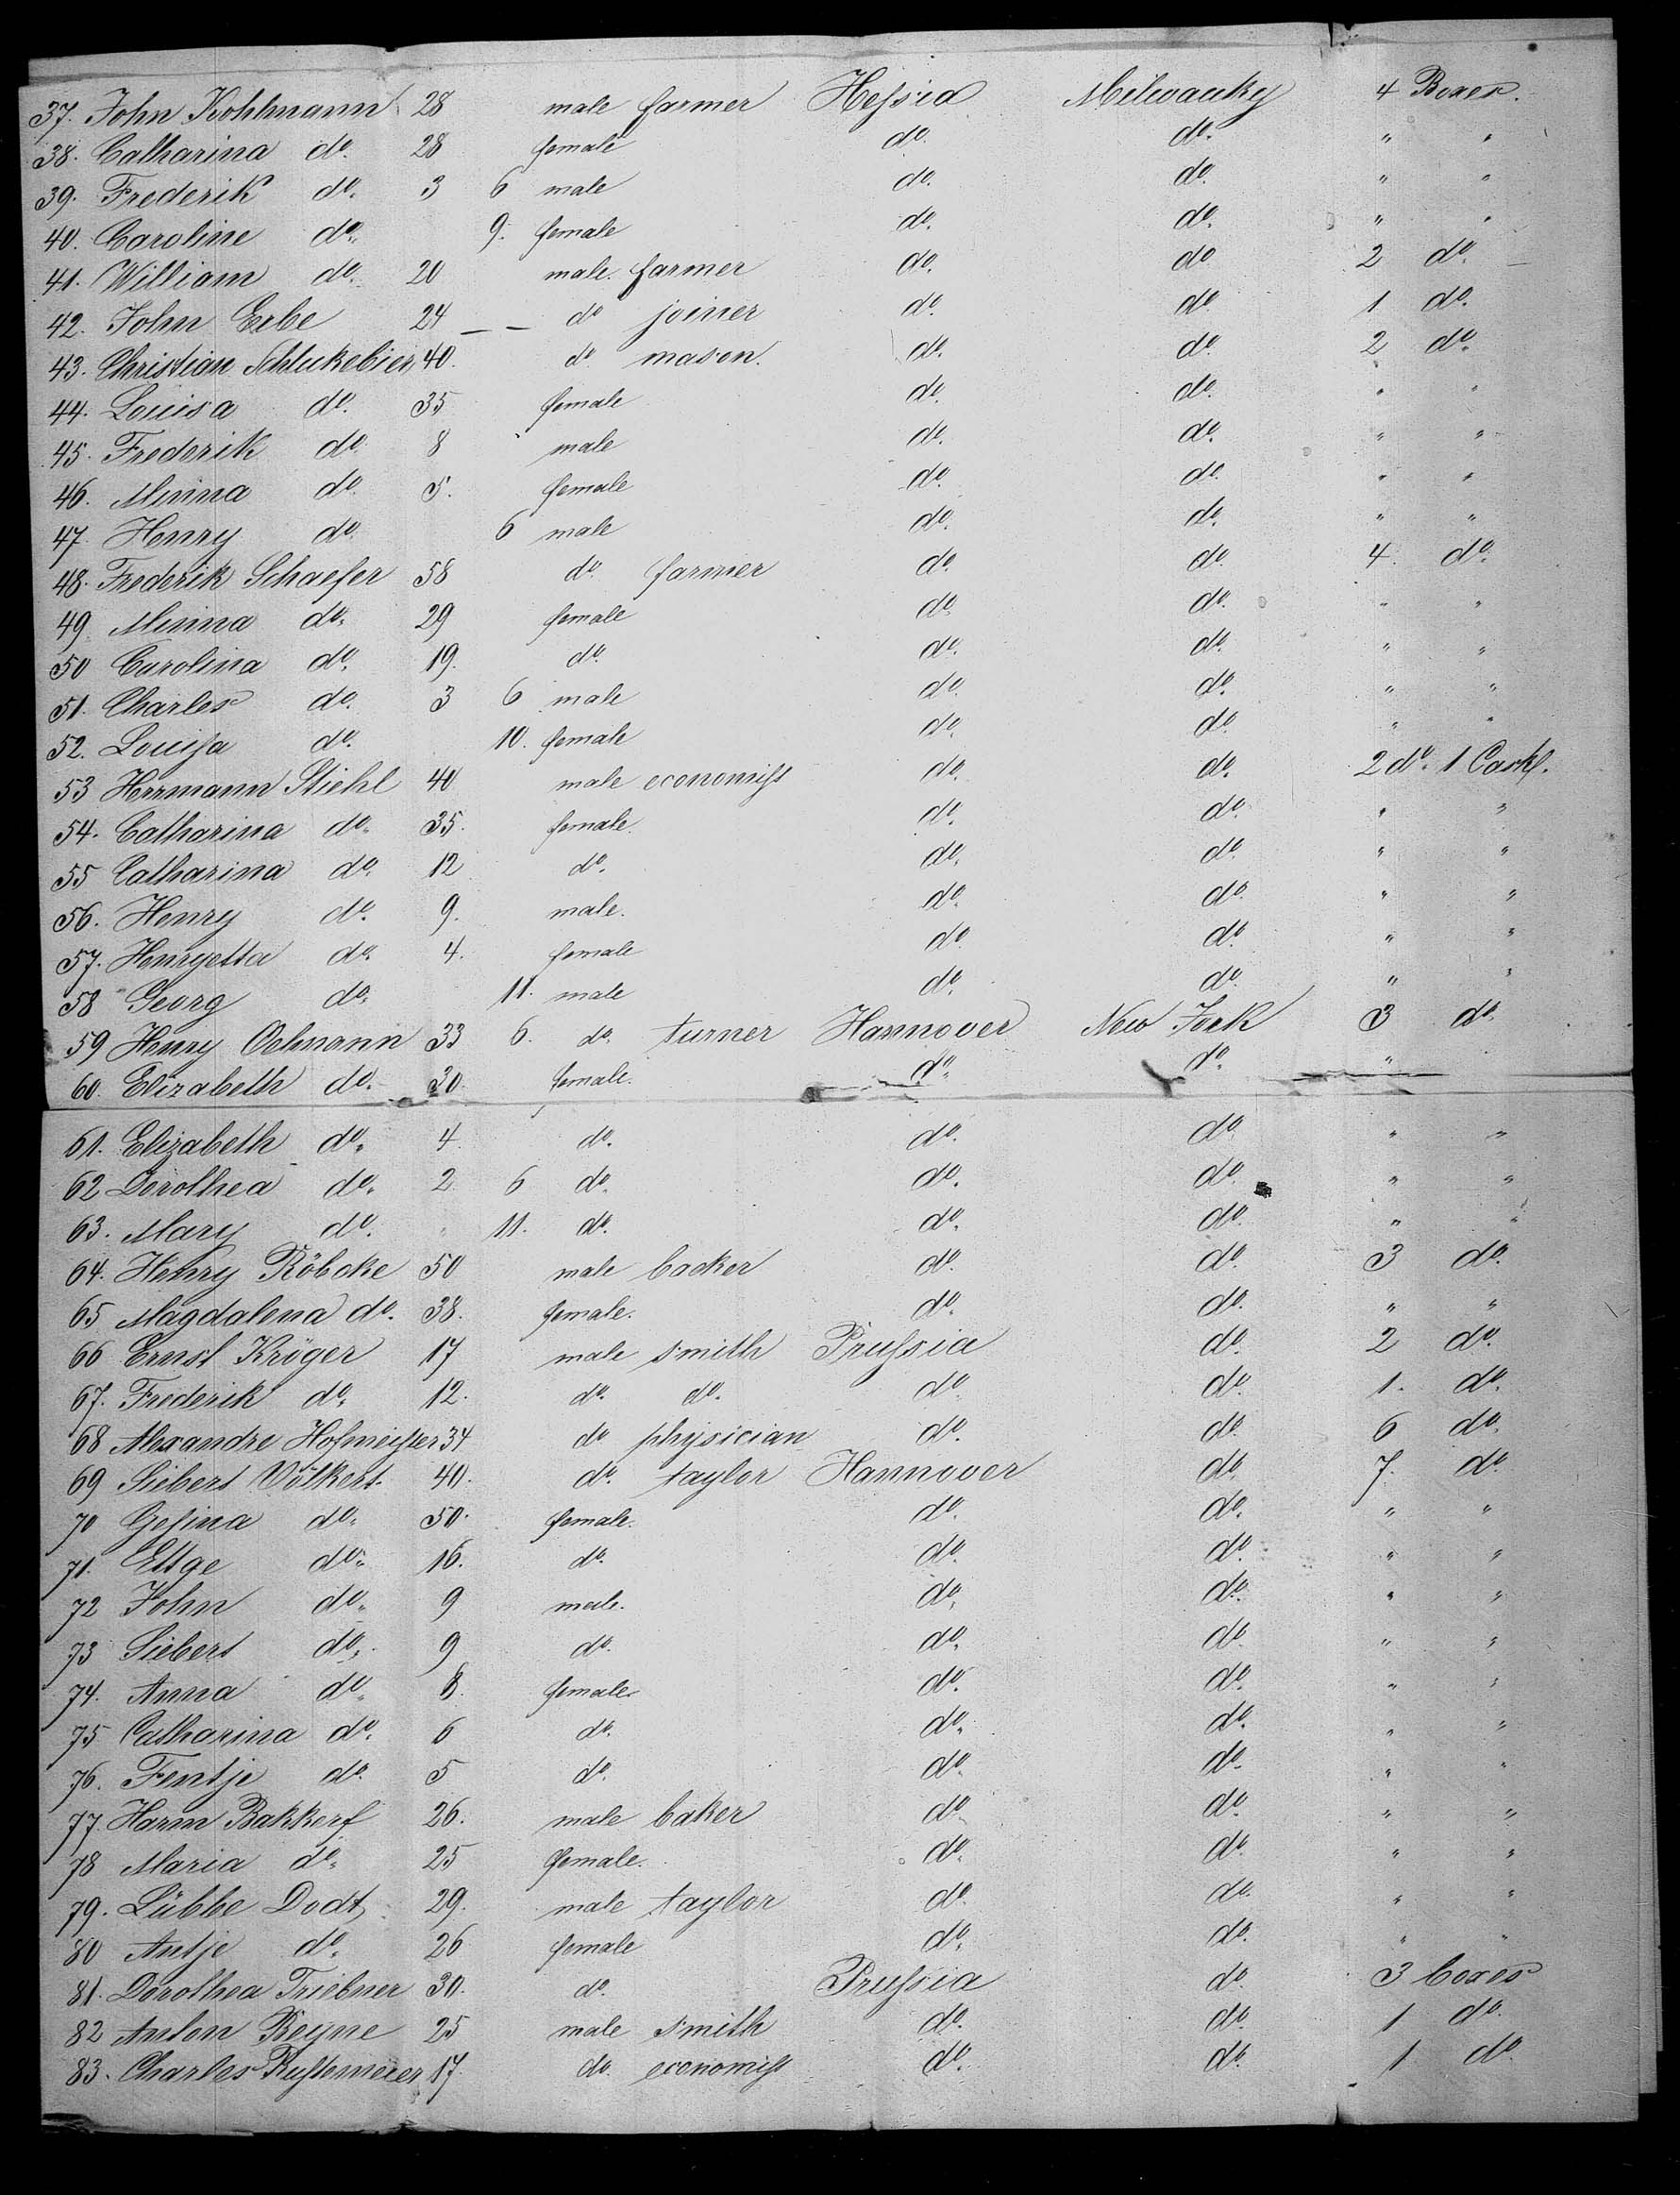 37. John Kohlmann 28 male farmer Hessia Milwauky 4 Boxes.
38. Catharina do. 28 female do. do. " "
39. Frederik do. 3 6 male do. do. " "
40. Caroline do. 9. female do. do. " "
41. William do. 20 male. farmer do. do 2 do.
42. John Erbe 24 — — do joiner do. do 1 do.
43. Christian Schlukebier 40. do mason. do. do. 2 do.
44. Louisa do. 35 female do. do. " "
45. Frederik do. 8 " male do. do. " "
46. Minna do. 5. female do. do. " "
47. Henry do. 6 male do. do. " "
48. Frederik Schaefer 58 do. farmer do. do. 4. do.
49. Minna do. 29 female do. do. " "
50 Carolina do. 19. do. do. do. " "
51. Charles do. 3 6 male do. do. " "
52. Louisa do. 10. female do. do. " "
53 Herrmann Stiehl 40 male economist do. do. 2 do. 1 Cask.
54. Catharina do. 35. female. do. do. " "
55 Catharina do. 12 do. do. do. " "
56. Henry do. 9. male. do. do. " "
57. Henryetta do. 4. female do. do. " "
58 Georg do. 11. male do. do. " "
59 Henry Oelmann 33 6. do. turner Hannover New York 3 do.
60. Elizabeth do. 30. female. do. do. "
61. Elizabeth do. 4 do. do. do. " "
62 Dorothea do. 2 6 do. do. do. " "
63. Mary do. " 11. do. do. do. " "
64. Henry Röbcke 50 male backer do. do. 3 do.
65 Magdalena do. 38. female. do. do. " "
66 Ernst Kröger 17 male smith Prussia do. 2 do.
67. Frederik do. 12. do. do. do. do. 1. do.
68 Alexandre Hofmeister 34 do physician do. do. 6 do.
69 Siebert Völkert. 40. do. taylor Hannover do. 7. do.
70 Gesina do. 50. female. do. do. " "
71. Ettge do. 16. do. do. do. " "
72 John do. 9 male. do. do. " "
73 Siebert do. 9 do. do. do. " "
74. Anna do. 8. female do. do. " "
75 Catharina do. 6 do. do. do. " "
76. Fentje do. 5 do. do. do. " "
77. Harm Bakker 26. male baker do. do. " "
78 Maria do. 25 female. do. do. " "
79. Lübbe Dodt 29. male taylor do. do. " "
80 Antje do. 26 female do. do. " "
81. Dorothea Triebner 30. do. Prussia do. 3 boxes
82 Anton Beyne 25 male smith do. do. 1 do.
83. Charles Rustemeier 17 do. economist do. do. 1 do.